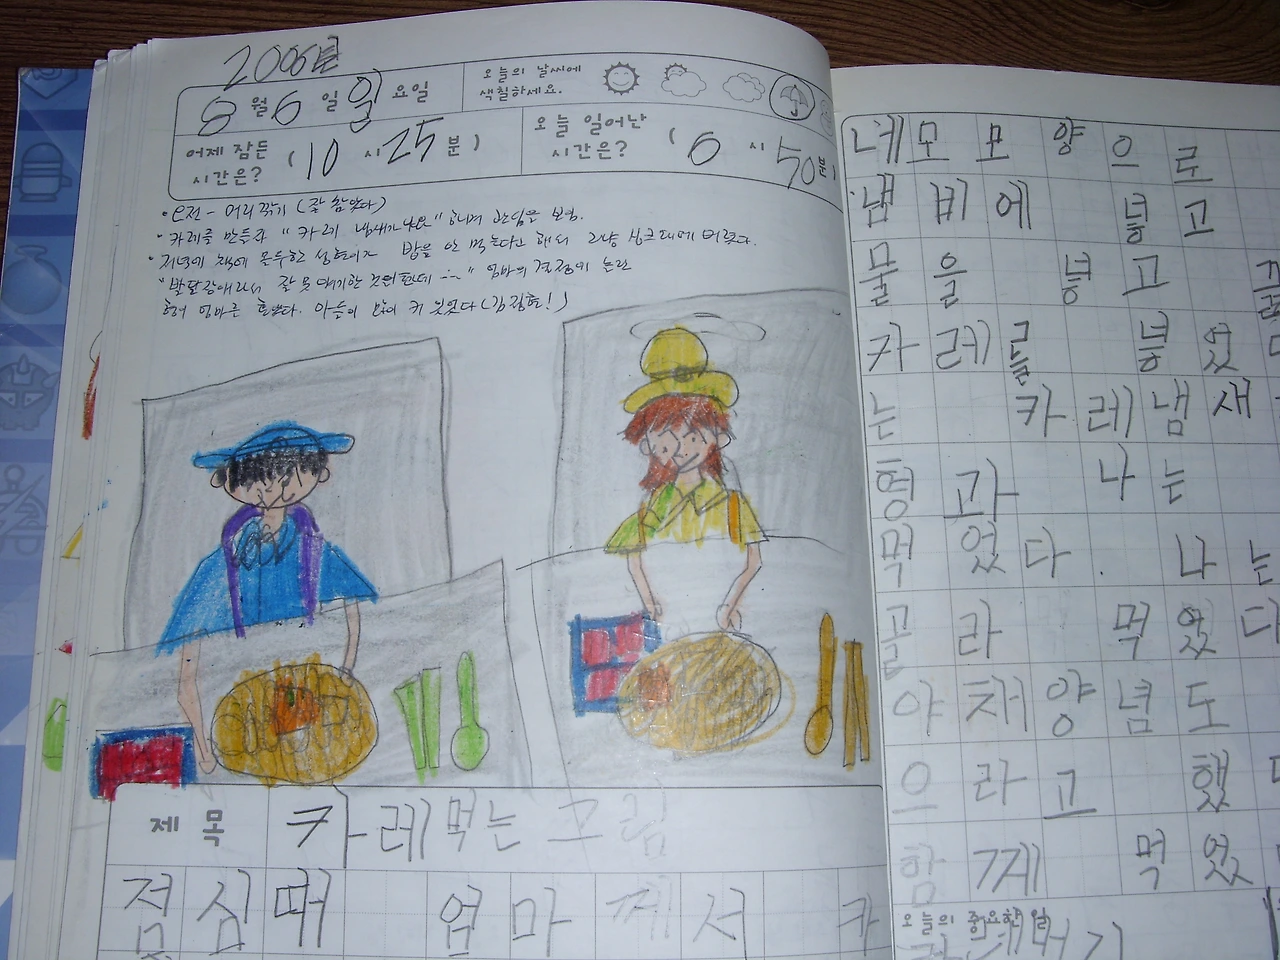 2006년
8월 6일 일요일
오늘의 날씨에
색칠하세요.
어제 잠든
시간은? (10시 25분)
오늘 일어난
시간은? (6시 50분)
오전 - 머리깎기 (잘 참았다)
카레를 만들자 " 카레 냄새가 나요" 하며
저녁에 밥을 안 먹는다고 해서 그냥 싱크대에 버렸다.
엄마의
엄마는 아들이 (김정현!)
제목 카레먹는 그림
점심때 엄마께서 카
네모모양으로
냄비에 넣고
물을 넣고 끓
카레를 넣었
는 카레냄새
형과 나는
먹었다. 나는
골라 먹었다
야채양념도
으라고 했
함께 먹었
오늘의 중요한 일